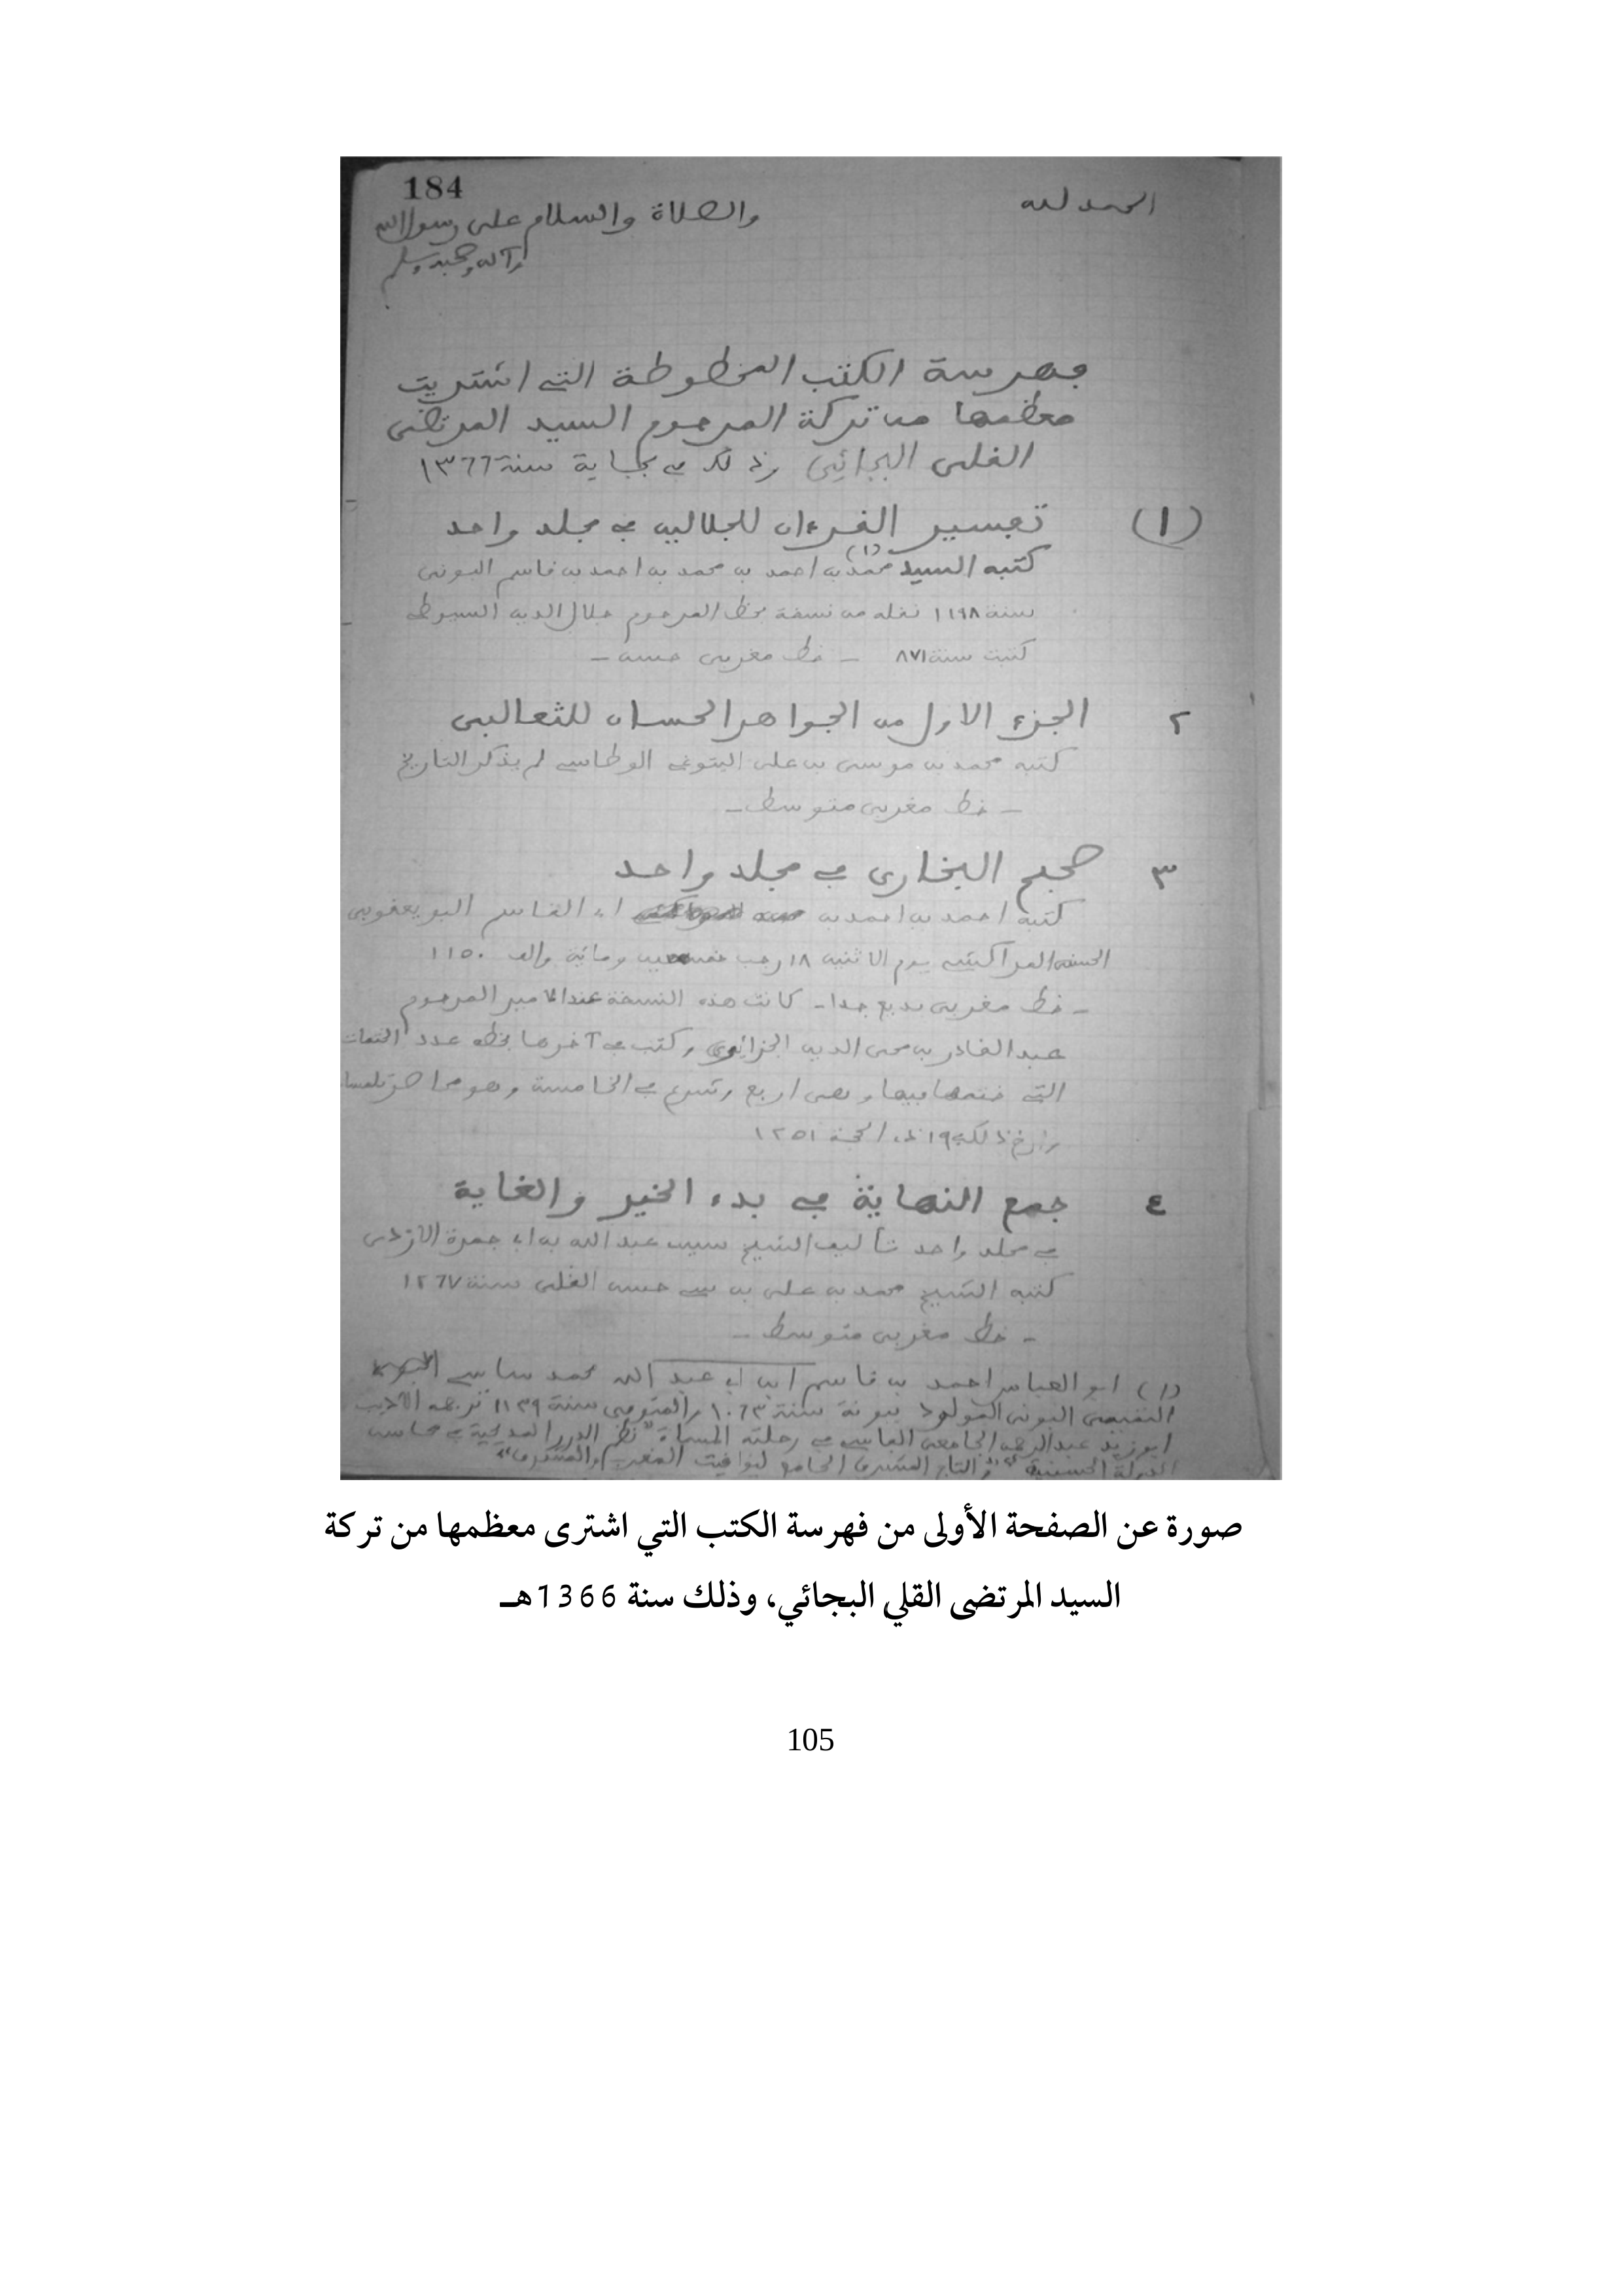 184
الحمد لله
والصلاة والسلام على رسول الله
وآله وصحبه وسلم
فهرسة الكتب المخطوطة التي اشتريت
معظمها من تركة المرحوم السيد المرتضى
القلى البجائي وذلك في بجاية سنة ١٣٦٦
(١) تفسير القرءان للجلالين في مجلد واحد
كتبه السيد محمد (١) بن احمد بن محمد بن احمد بن قاسم البونى
سنة ١١٩٨ نقله من نسخة بخط المرحوم جلال الدين السيوطي
كتبت سنة ٨٧١ - خط مغربى حسن -
٢ الجزء الاول من الجواهر الحسان للثعالبى
كتبه محمد بن موسى بن على الوطاسي لم يذكر التاريخ
- خط مغربى متوسط -
٣ صحيح البخارى في مجلد واحد
كتبه احمد بن احمد بن ابي القاسم اليويعقوبى
الحسنى المراكشي يوم الاثنين ١٨ رجب خمسين ومائة والف ١١٥٠
- خط مغربى بديع جدا - كانت هذه النسخة عند الامير المرحوم
عبد القادر بن محى الدين الجزائرى وكتب في آخرها بخطه عدد الختمات
التي ختمها فيها وهى اربع وشرع في الخامسة وهو محاصر تلمسان
وارخ ذلك في ١٩ ذي الحجة ١٢٥١
٤ جمع النهاية في بدء الخير والغاية
في مجلد واحد تأليف الشيخ سيدى عبد الله بن ابي جمرة الازدى
كتبه الشيخ محمد بن على بن سي حسن القلى سنة ١٢٦٧
- خط مغربى متوسط -
(١) ابو العباس احمد بن قاسم ابن ابي عبد الله محمد ساسي
التميمى البونى المولود ببونة سنة ١٠٦٣ والمتوفى سنة ١١٣٩ ترجمه الاديب
ابو زيد عبد الرحمن الجامعى الفاسي في رحلته المسماة "نظم الدرر المديحية في محاسن
الدولة الحسينية" و"التاج المشرق الجامع ليواقيت المغرب والمشرق"
صورة عن الصفحة الأولى من فهرسة الكتب التي اشترى معظمها من تركة
السيد المرتضى القلي البجائي، وذلك سنة 1366هـ
105